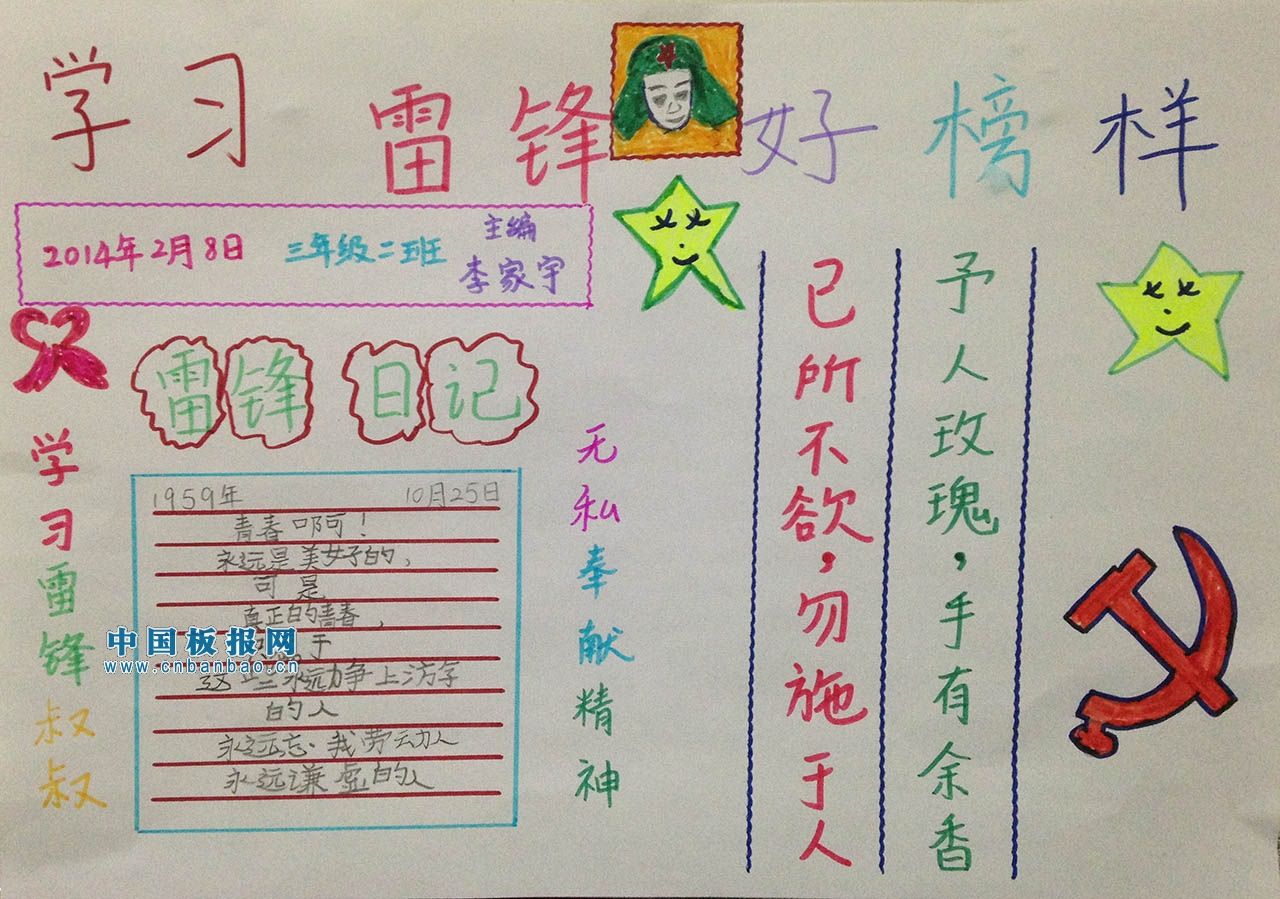 学习雷锋好榜样
2014年2月8日 三年级二班 主编
李家宇
雷锋日记
学习雷锋叔叔
1959年 10月25日
青春啊!
永远是美好的,
可是
真正的青春,
于
这 永 争上游
的人
永远忘 我劳动 人
永远谦虚的人
中国板报网
www.cnbanbao.cn
无私奉献精神
己所不欲,勿施于人
予人玫瑰,手有余香